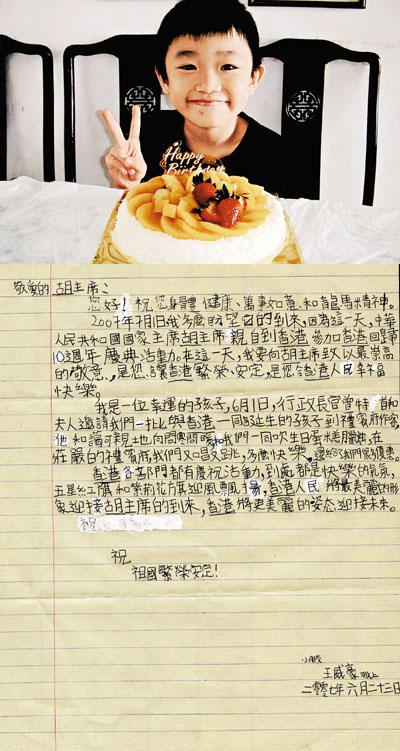 Happy
Birthday
敬愛的 胡主席:
您好!祝您身體健康、萬事如意、和龍馬精神。
2007年7月1日我多麼盼望日的到來,因為這一天,中華
人民共和國國家主席胡主席親自到香港參加香港回歸
10週年慶典活動。在這一天,我要向胡主席致以最崇高
的敬意,是您讓香港繁榮、安定,是您令香港人民幸福
快樂。
我是一位幸運的孩子,6月1日,行政長官曾特首和
夫人邀請我們一批與香港一同誕生的孩子到禮賓府作客,
他和藹可親地向問寒問暖和我們一同吹生日蛋糕臘燭,在
莊嚴的禮賓府我們又唱又跳,多麼快樂,
香港各部門都有慶祝活動,到處都是快樂的氣氛,
五星紅旗和紫荊花旗迎風飄揚,香港人民將最美麗的形
象迎接胡主席的到來,香港將更美麗的姿态迎接未來。
祝
祝
祖國繁榮安定!
小朋友
王威豪 敬上
二零零七年六月二十三日